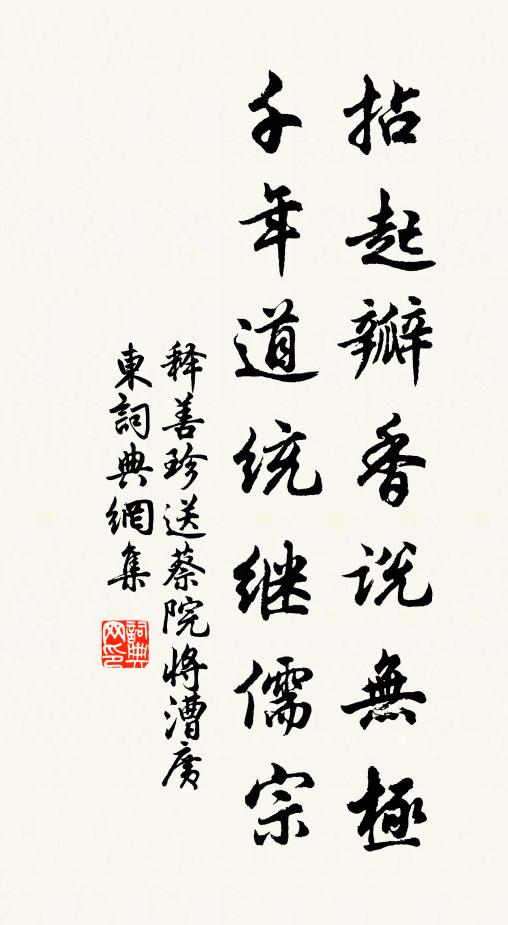 拈起瓣香說無極
千年道统继儒宗
释善珍送蔡院将漕廣
東詞典網集
詞典网印